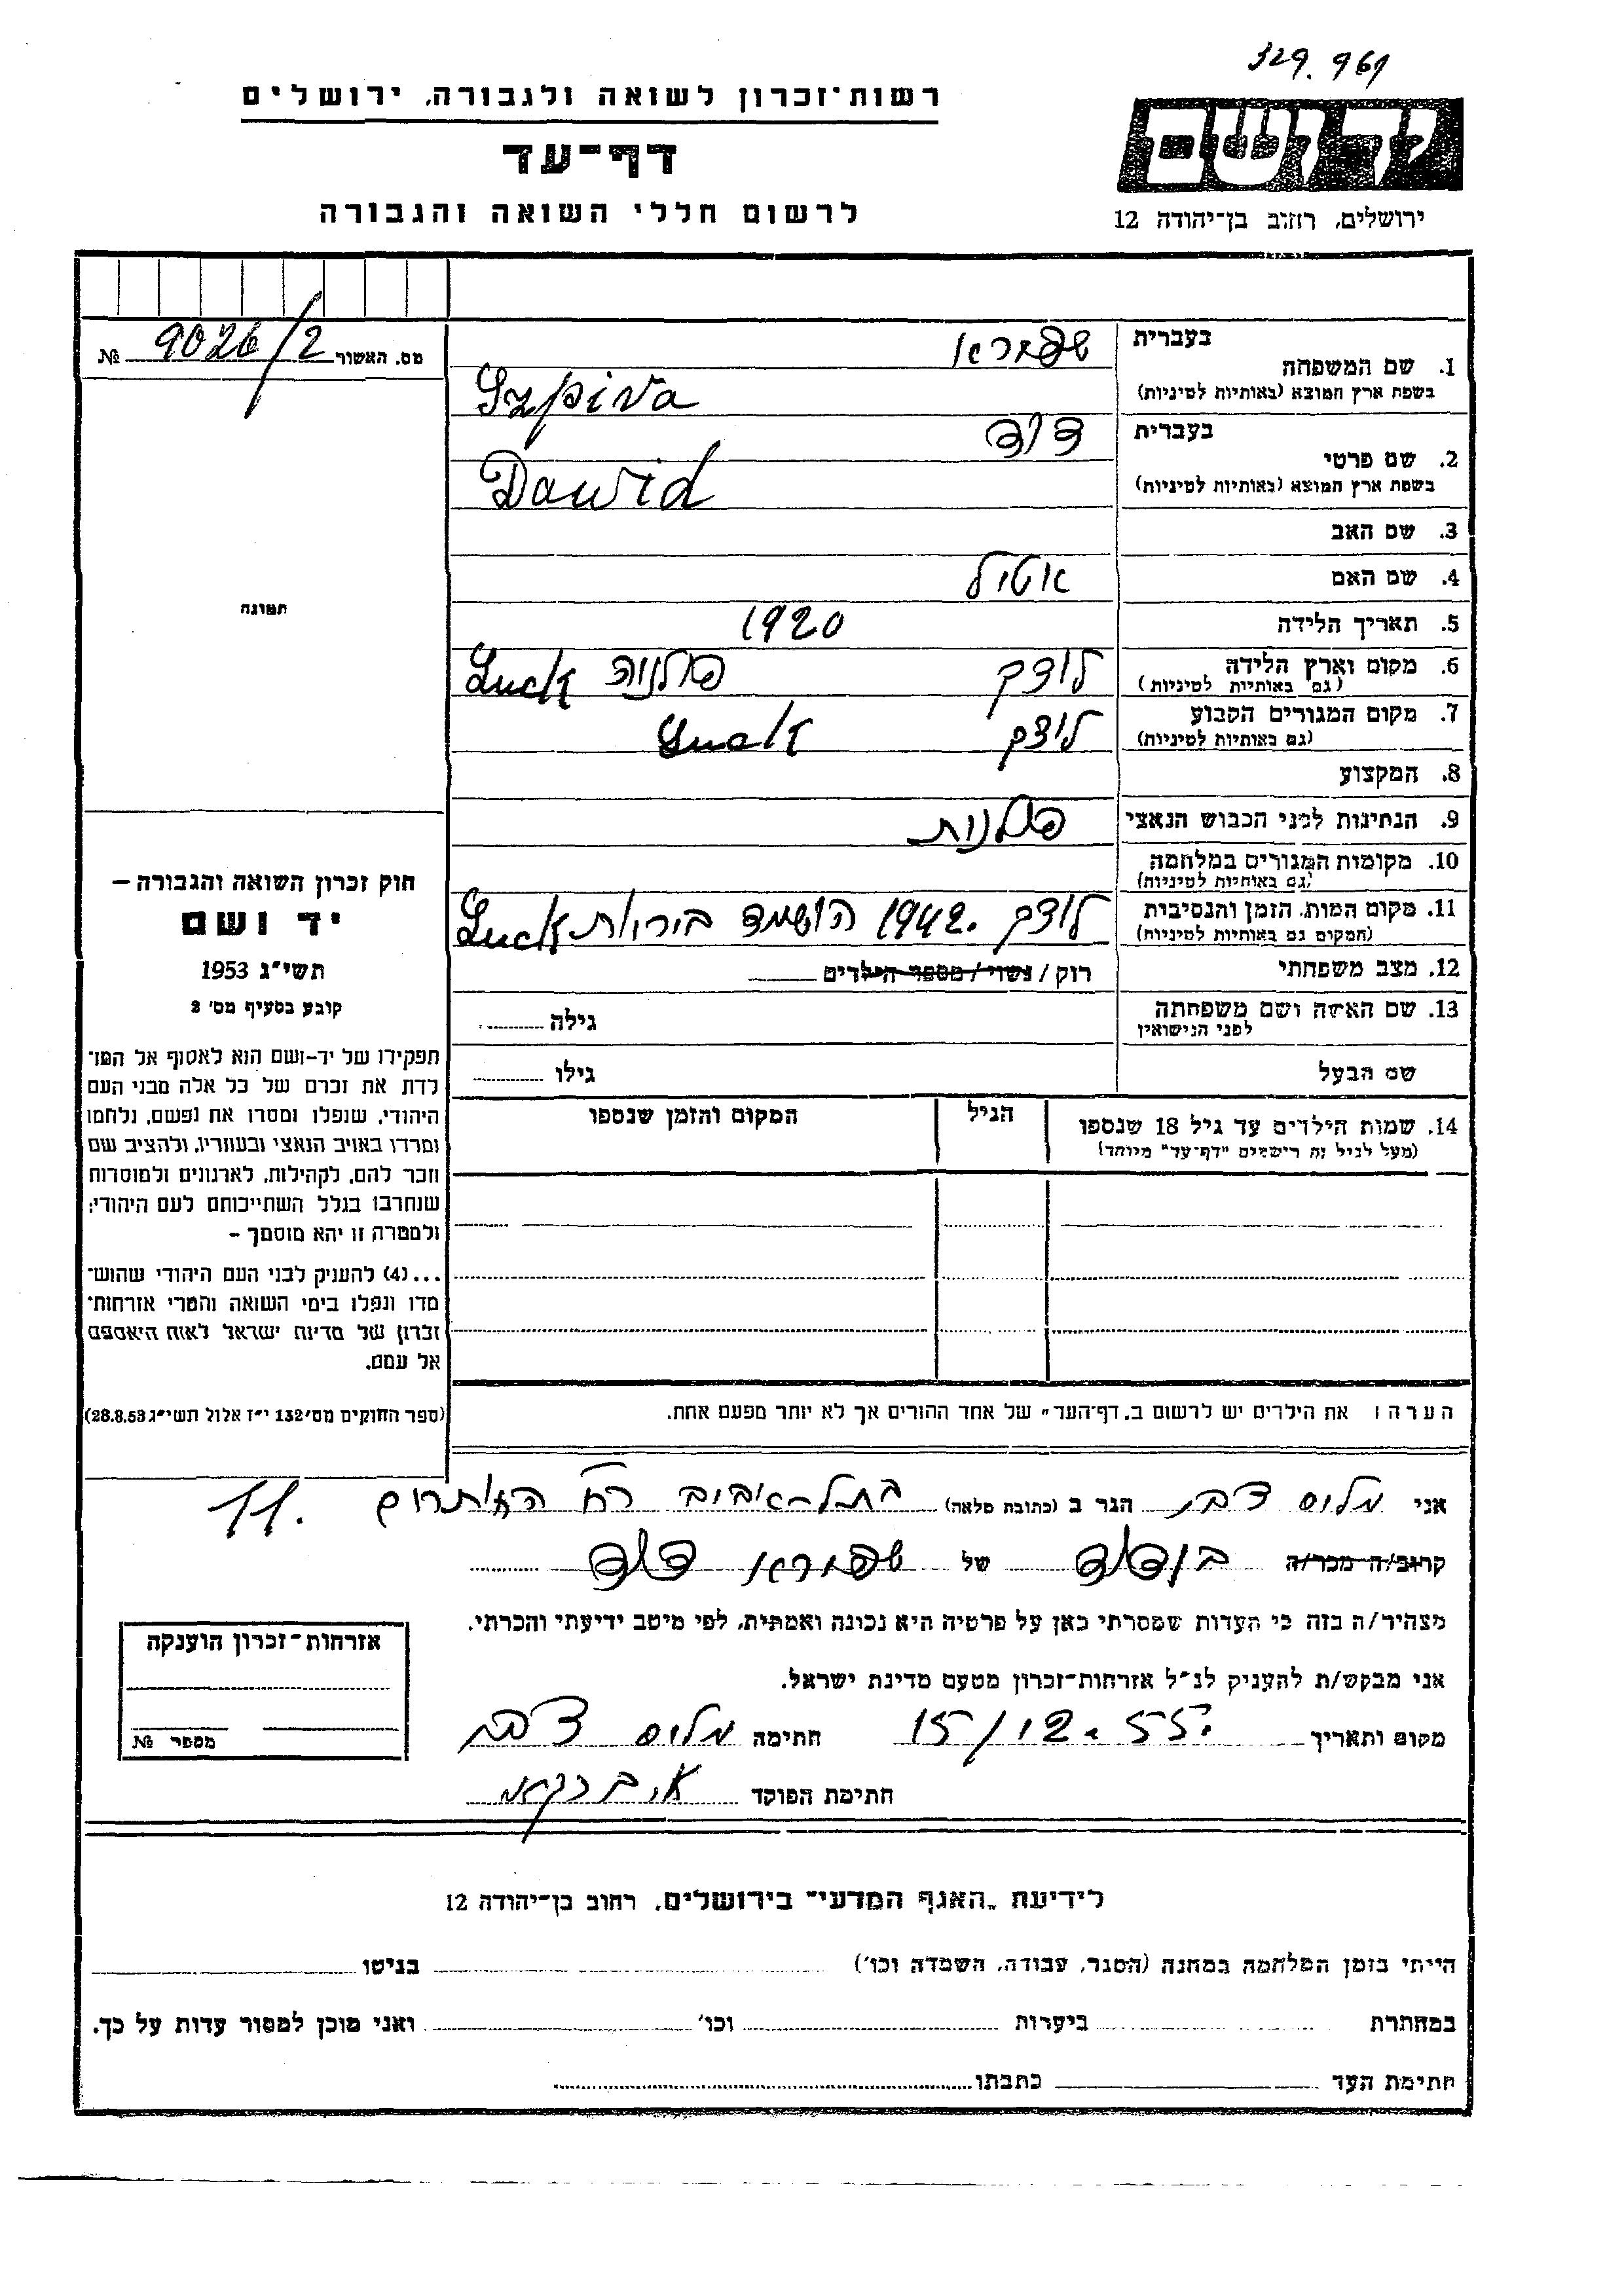 329.961
רשות־זכרון לשואה ולגבורה, ירושלים
דף־עד
לרשום חללי השואה והגבורה
יד ושם
ירושלים, רחוב בן־יהודה 12
מס. האשור 9026/2 №
תמונה
בעברית
1. שם המשפחה
בשפת ארץ המוצא (באותיות לטיניות) Szpiva
בעברית דוד
2. שם פרטי
בשפת ארץ המוצא (באותיות לטיניות) Dawid
3. שם האב
4. שם האם
5. תאריך הלידה 1920
6. מקום וארץ הלידה לודצק פולניה Łuck
(גם באותיות לטיניות)
7. מקום המגורים הקבוע לוצק Łuck
(גם באותיות לטיניות)
8. המקצוע
9. הנתינות לפני הכבוש הנאצי פולנית
10. מקומות המגורים במלחמה
(גם באותיות לטיניות)
11. מקום המות, הזמן והנסיבות לודצק 1942. הושמד Łuck
(המקום גם באותיות לטיניות)
12. מצב משפחתי רוק / נשוי / מספר הילדים
13. שם האשה ושם משפחתה גילה
לפני הנישואין
שם הבעל גילו
14. שמות הילדים עד גיל 18 שנספו הגיל המקום והזמן שנספו
(מעל לגיל זה רישמים "דף־עד" מיוחד)
חוק זכרון השואה והגבורה –
יד ושם
תשי"ג 1953
קובע בסעיף מס' 2
תפקידו של יד-ושם הוא לאסוף אל המו־
לדת את זכרם של כל אלה מבני העם
היהודי, שנפלו ומסרו את נפשם, נלחמו
ומרדו באויב הנאצי ובעוזריו, ולהציב שם
וזכר להם, לקהילות, לארגונים ולמוסדות
שנחרבו בגלל השתייכותם לעם היהודי;
ולמטרה זו יהא מוסמך –
...(4) להעניק לבני העם היהודי שהוש־
מדו ונפלו בימי השואה והמרי אזרחות־
זכרון של מדינת ישראל לאות היאספם
אל עמם.
(ספר החוקים מס' 132 י"ז אלול תשי"ג 28.8.53)
הערה: את הילדים יש לרשום ב"דף־העד" של אחד ההורים אך לא יותר מפעם אחת.
אני הגר ב (כתובת מלאה) בתל-אביב 11.
קרוב/ה מכר/ה בן דוד של דוד
מצהיר/ה בזה כי העדות שמסרתי כאן על פרטיה היא נכונה ואמתית, לפי מיטב ידיעתי והכרתי.
אני מבקש/ת להעניק לנ"ל אזרחות-זכרון מטעם מדינת ישראל.
מקום ותאריך 15/12.55. חתימה
חתימת הפוקד
אזרחות־זכרון הוענקה
מספר №
לידיעת "האגף המדעי" בירושלים, רחוב בן-יהודה 12
הייתי בזמן המלחמה במחנה (הסגר, עבודה, השמדה וכו') בגיטו
במחתרת ביערות וכו' ואני מוכן למסור עדות על כך.
חתימת העד כתבתו